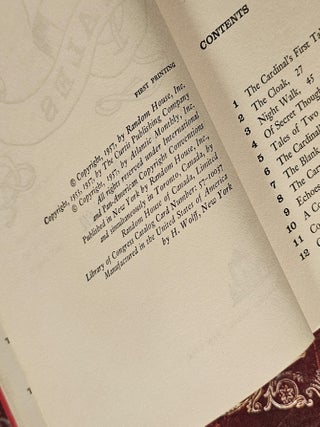 FIRST PRINTING
© Copyright, 1957, by Random House, Inc.
Copyright, 1955, 1957, by The Curtis Publishing Company
© Copyright, 1957, by Atlantic Monthly, Inc.
All rights reserved under International
and Pan-American Copyright Conventions
Published in New York by Random House, Inc.,
and simultaneously in Toronto, Canada, by
Random House of Canada, Limited
Library of Congress Catalog Card Number: 57-10037
Manufactured in the United States of America
by H. Wolff, New York
CONTENTS
1 The Cardinal's First Tal
2 The Cloak, 27
3 Night Walk, 45
4 Of Secret Though
5 Tales of Two
6 The Cardin
7 The Blank
8 The Car
9 Echoes
10 A Co
11 Co
12 C